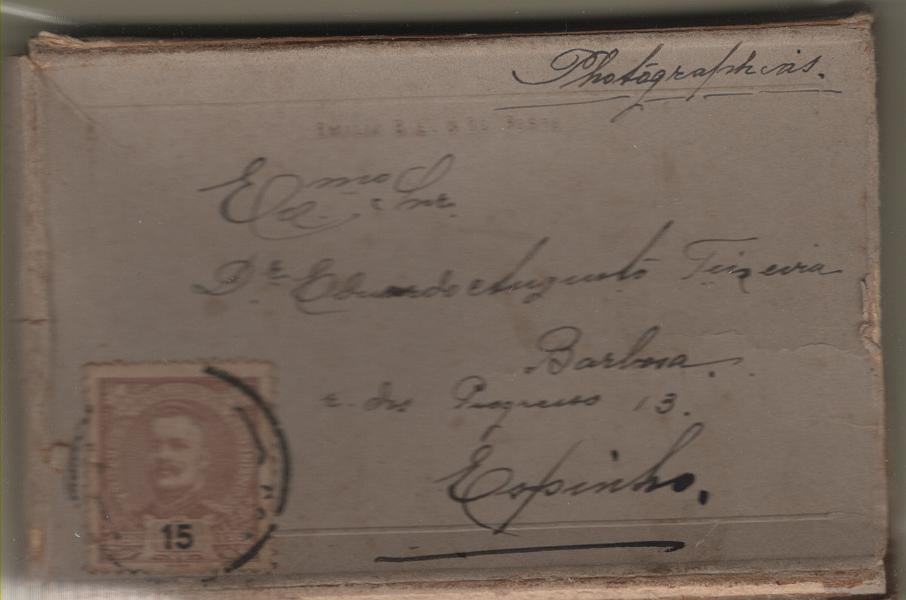 Photographias.
Exmo Snr.
Dr Eduardo Augusto Teixeira
Barbosa.
r. do Progresso 13.
Espinho.
15